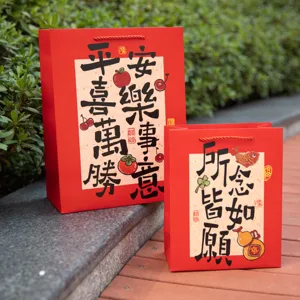 平安
喜樂
萬事
勝意
所念
皆如
願